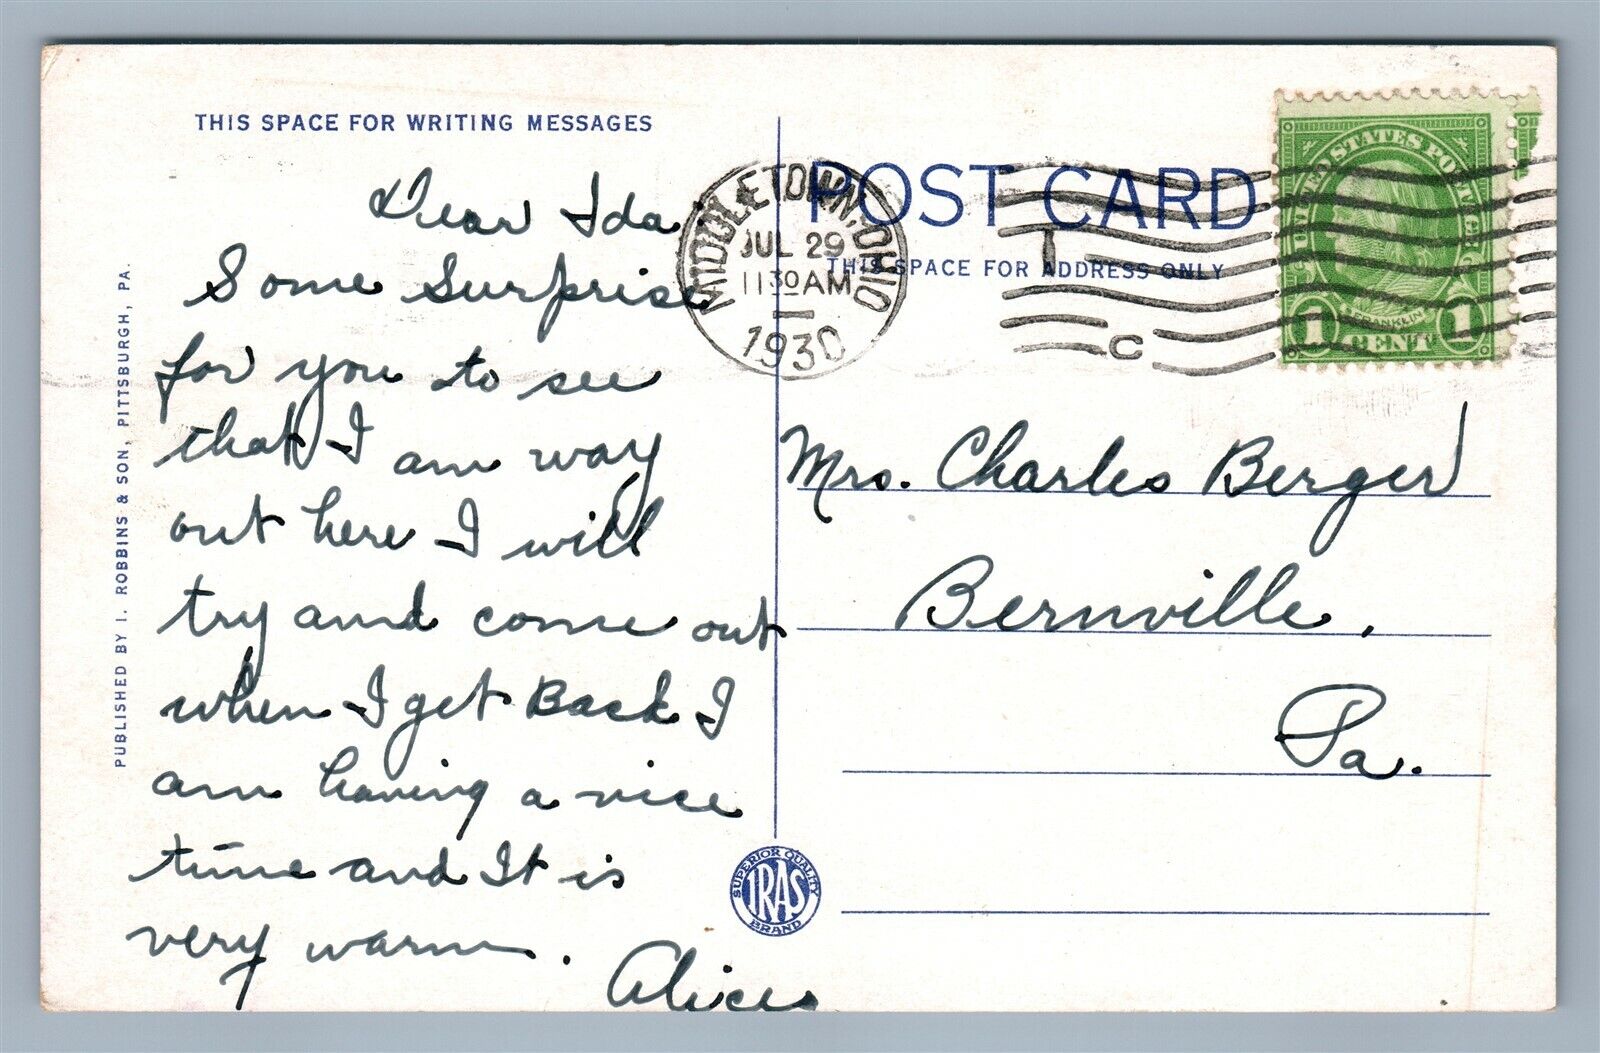 THIS SPACE FOR WRITING MESSAGES
Dear Ida
Some Surprise
for you to see
that I am way
out here I will
try and come out
when I get Back I
am having a nice
time and It is
very warm.
Alice
PUBLISHED BY I. ROBBINS & SON, PITTSBURGH, PA.
SUPERIOR QUALITY
IRAS
BRAND
POST CARD
THIS SPACE FOR ADDRESS ONLY
MIDDLETOWN, OHIO
JUL 29
11 30 AM
1930
T
C
UNITED STATES POSTAGE
FRANKLIN
1 CENT 1
Mrs. Charles Berger
Bernville,
Pa.